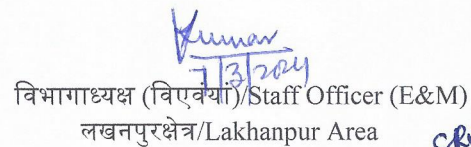 Kumar
7/3/2024
विभागाध्यक्ष (विएवंयां)/Staff Officer (E&M)
लखनपुरक्षेत्र/Lakhanpur Area